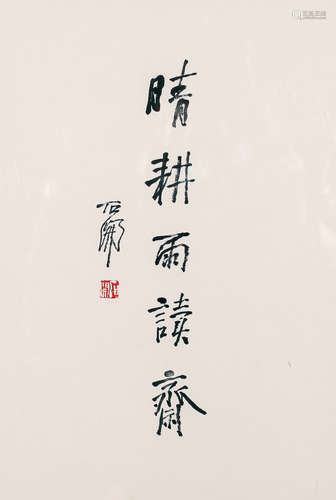 晴耕雨讀齋
石開